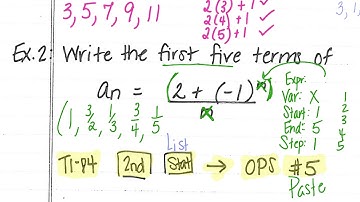 3, 5, 7, 9, 11
2(3)+1 ✓
2(4)+1 ✓
2(5)+1 ✓
3, 1,
Ex. 2: Write the first five terms of
an = (2 + (-1)^x) / x
(1, 3/2, 1/3, 3/4, 1/5
Expr:
Var: X
Start: 1
End: 5
Step: 1
1
2
3
4
5
List
TI-84 2nd Stat → OPS #5
Paste